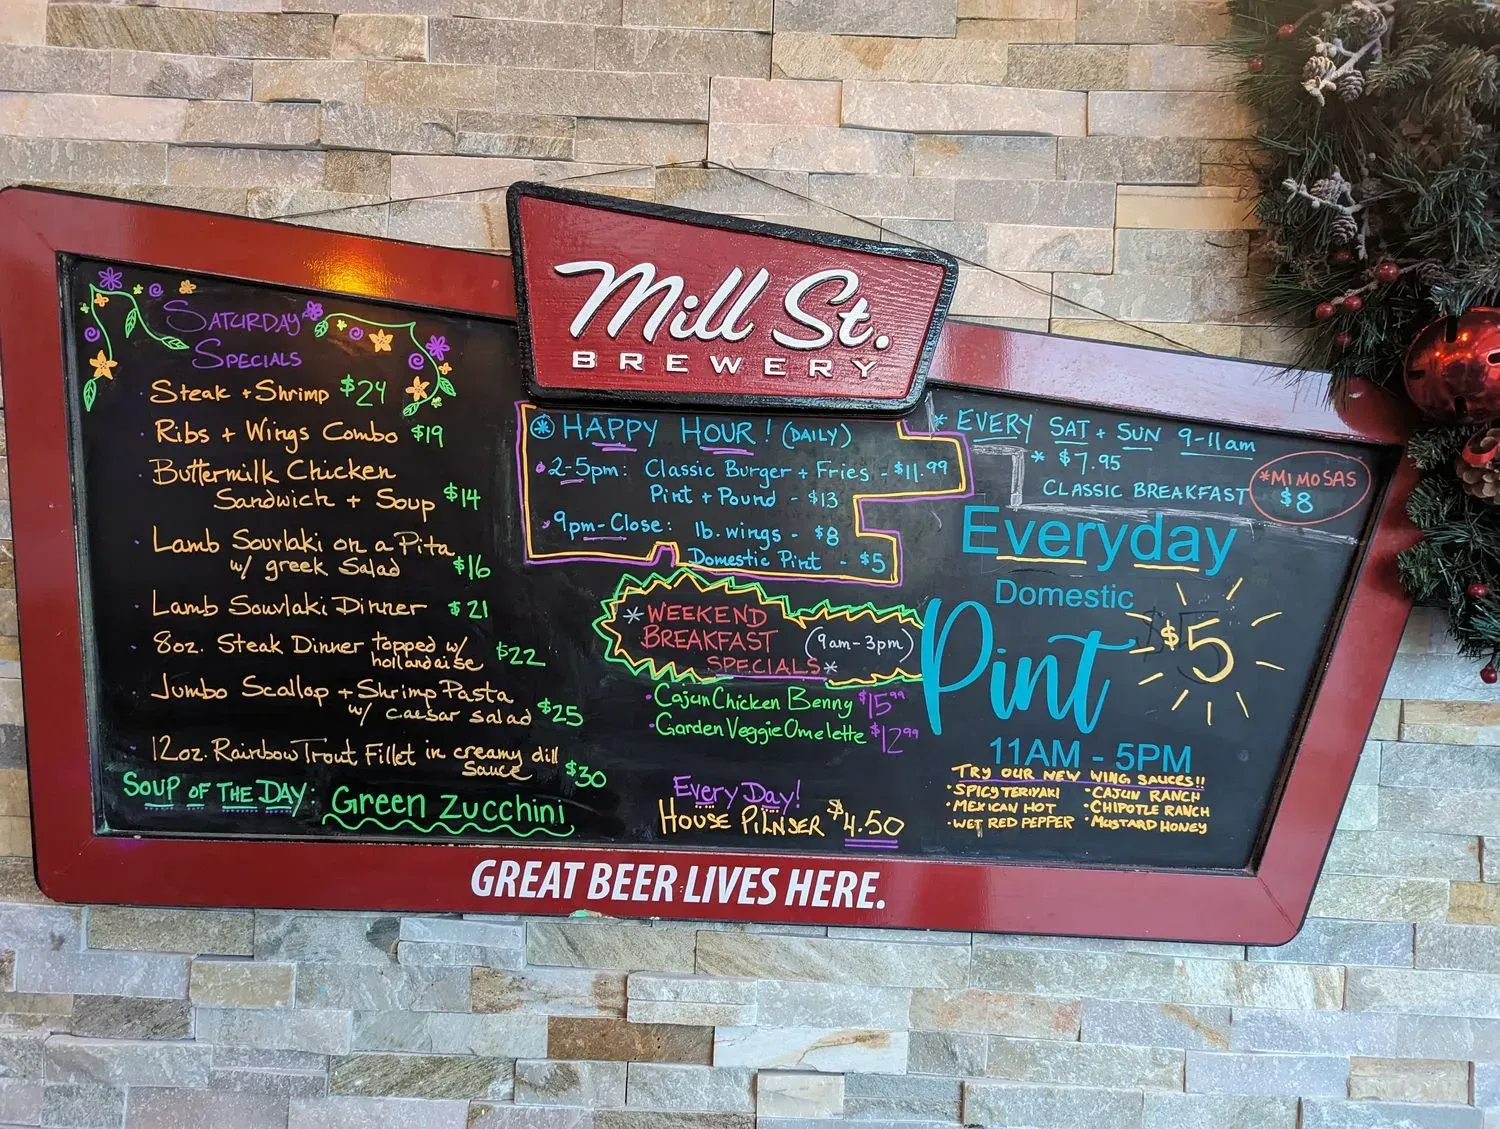 Mill St.
BREWERY
SATURDAY
SPECIALS
Steak + Shrimp $24
Ribs + Wings Combo $19
Buttermilk Chicken
Sandwich + Soup $14
Lamb Souvlaki on a Pita
w/ greek Salad $16
Lamb Souvlaki Dinner $21
8oz. Steak Dinner topped w/
hollandaise $22
Jumbo Scallop + Shrimp Pasta
w/ caesar salad $25
12oz. Rainbow Trout Fillet in creamy dill
sauce $30
SOUP OF THE DAY: Green Zucchini
* HAPPY HOUR! (DAILY)
2-5pm: Classic Burger + Fries - $11.99
Pint + Pound - $13
9pm-Close: lb. wings - $8
Domestic Pint - $5
* WEEKEND
BREAKFAST
SPECIALS *
(9am-3pm)
Cajun Chicken Benny $15.99
Garden Veggie Omelette $12.99
Every Day!
HOUSE PILNSER $4.50
* EVERY SAT + SUN 9-11am
* $7.95
CLASSIC BREAKFAST
*MIMOSAS
$8
Everyday
Domestic
Pint $5
11AM - 5PM
TRY OUR NEW WING SAUCES!!
• SPICY TERIYAKI • CAJUN RANCH
• MEXICAN HOT • CHIPOTLE RANCH
• WET RED PEPPER • MUSTARD HONEY
GREAT BEER LIVES HERE.